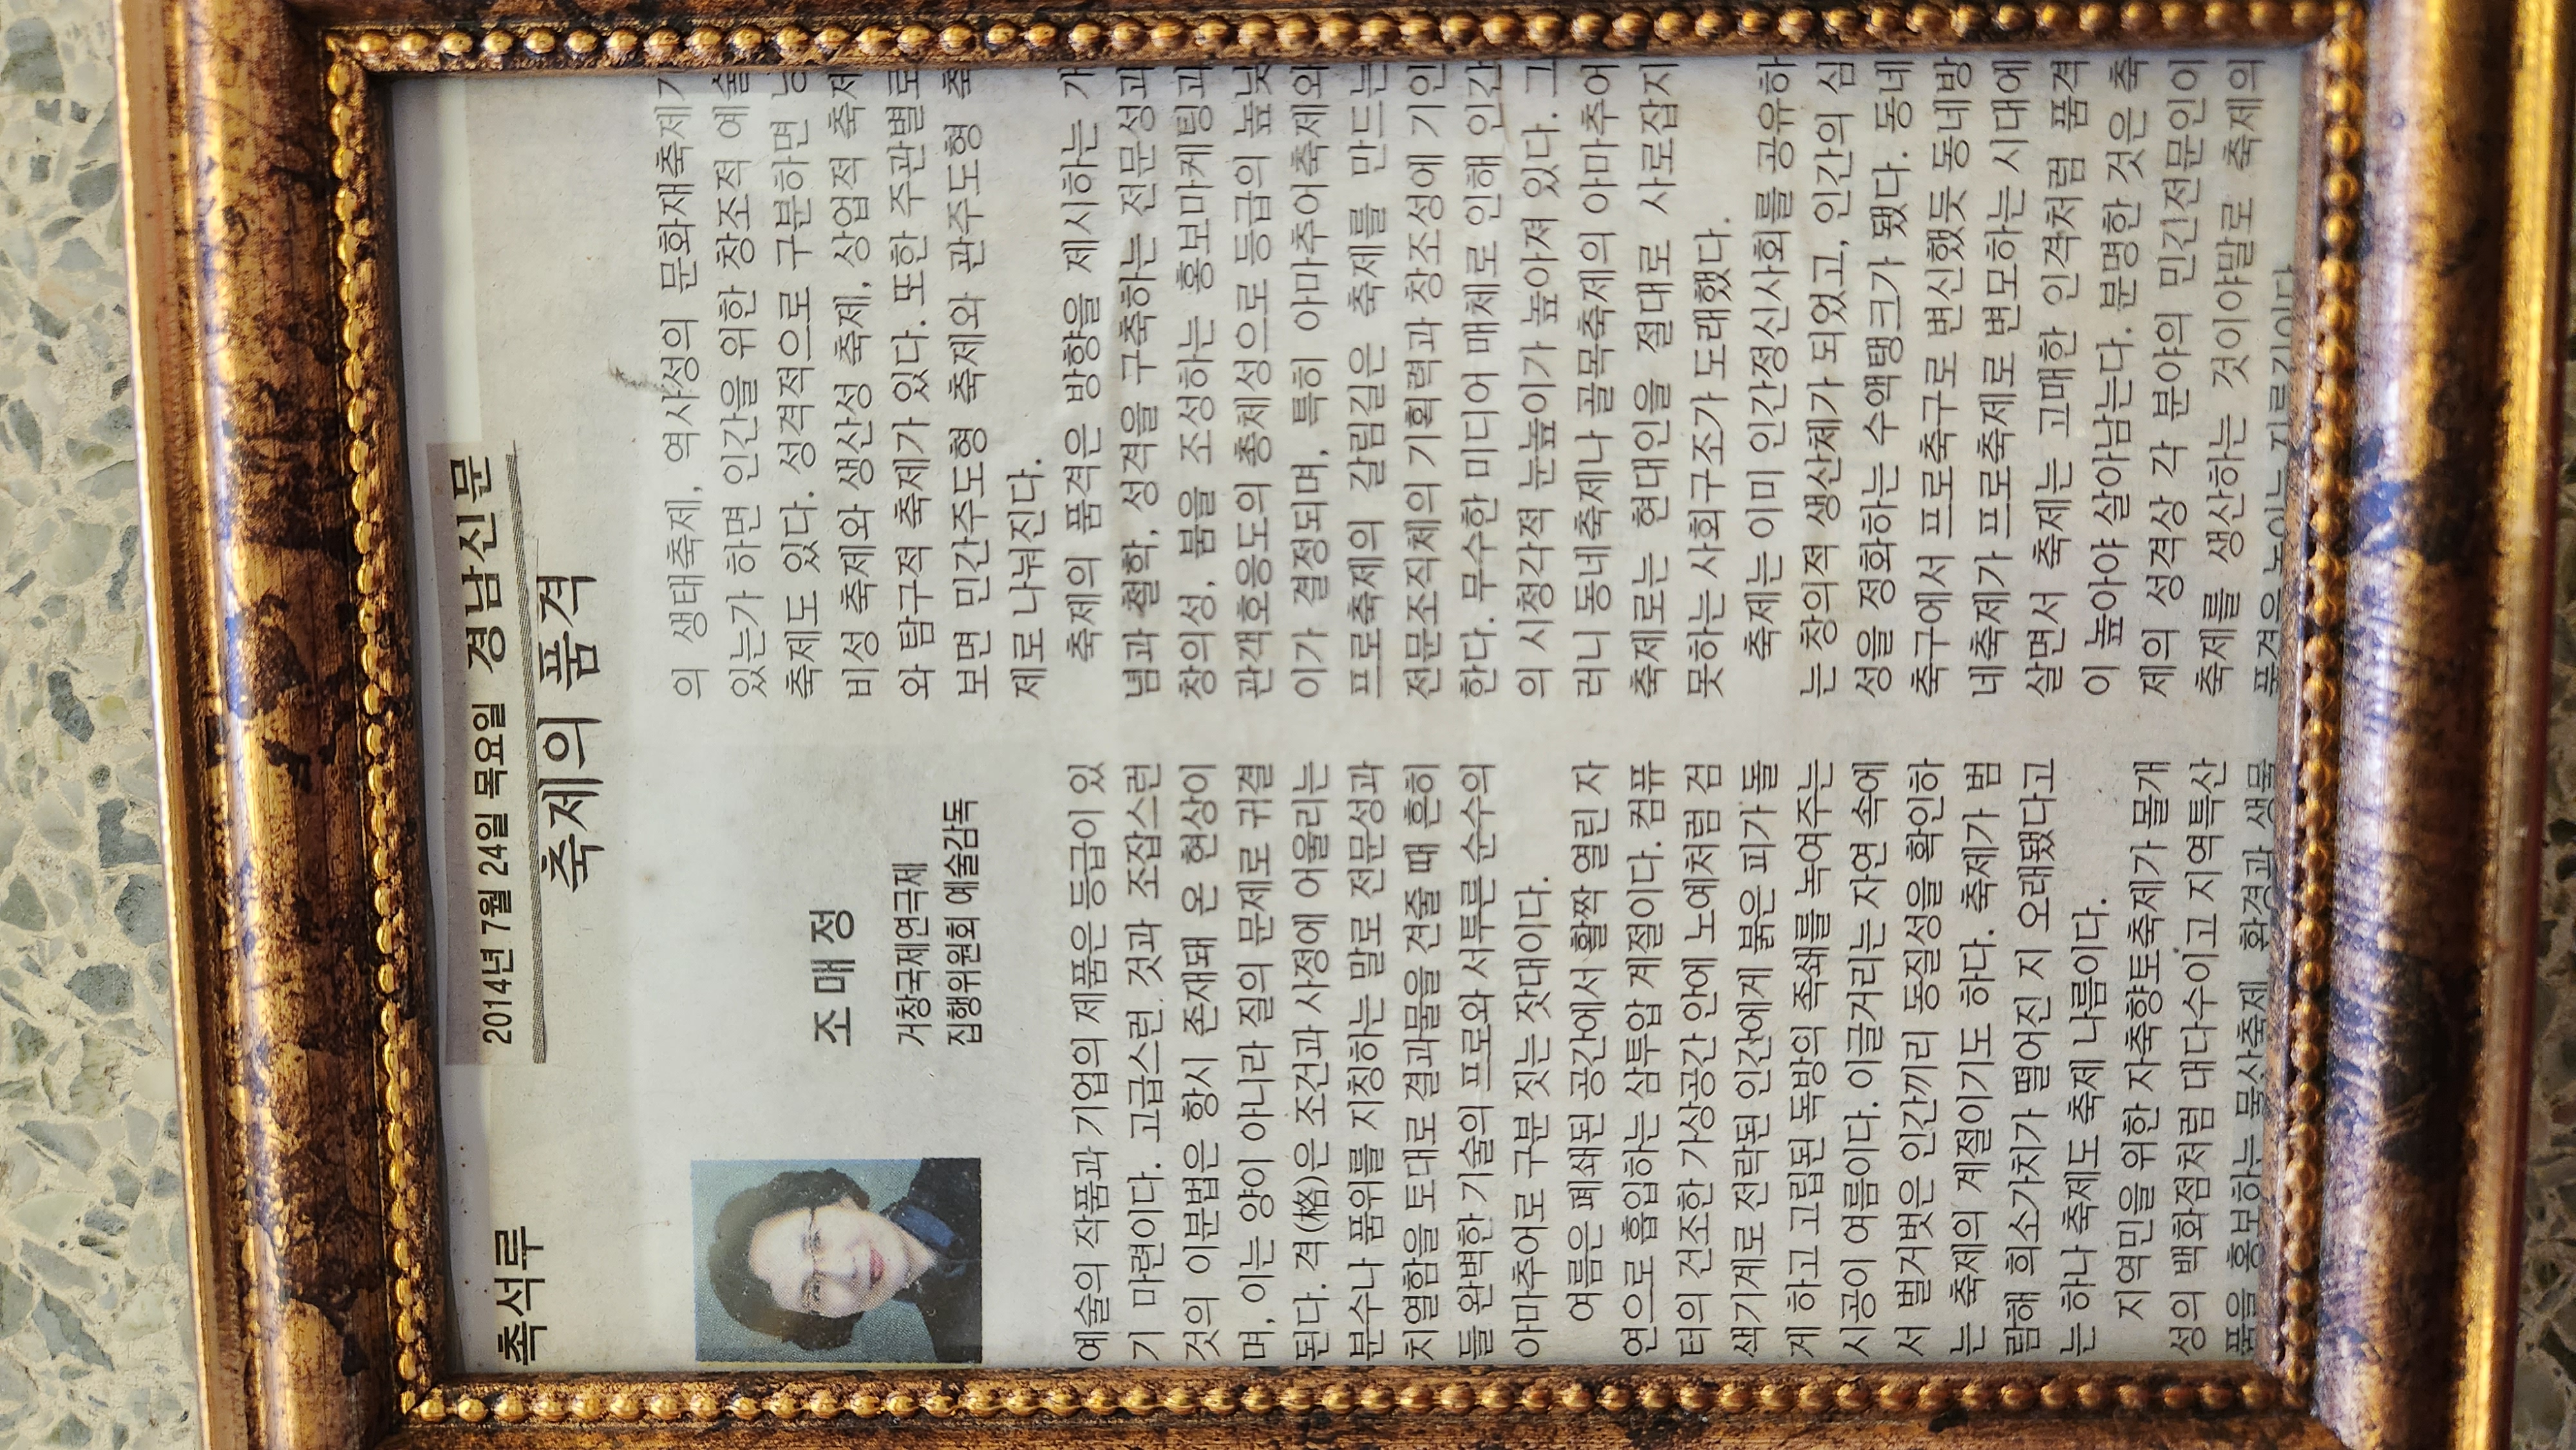 촉석루
2014년 7월 24일 목요일 경남신문
축제의 품격
조매정
거창국제연극제
집행위원회 예술감독
예술의 작품과 기업의 제품은 등급이 있
기 마련이다. 고급스런 것과 조잡스런
것의 이분법은 항시 존재돼 온 현상이
며, 이는 양이 아니라 질의 문제로 귀결
된다. 격(格)은 조건과 사정에 어울리는
분수나 품위를 지칭하는 말로 전문성과
치열함을 토대로 결과물을 견줄 때 흔히
들 완벽한 기술의 프로와 서투른 순수의
아마추어로 구분 짓는 잣대이다.
여름은 폐쇄된 공간에서 활짝 열린 자
연으로 흡입하는 삼투압 계절이다. 컴퓨
터의 건조한 가상공간 안에 노예처럼 검
색기계로 전락된 인간에게 붉은 피가 돌
게 하고 고립된 독방의 족쇄를 녹여주는
시공이 여름이다. 이글거리는 자연 속에
서 벌거벗은 인간끼리 동질성을 확인하
는 축제의 계절이기도 하다. 축제가 범
람해 희소가치가 떨어진 지 오래됐다고
는 하나 축제도 축제 나름이다.
지역민을 위한 자축향토축제가 몰개
성의 백화점처럼 대다수이고 지역특산
품을 홍보하는 물산축제, 환경과 생물
의 생태축제, 역사성의 문화재축제가
있는가 하면 인간을 위한 창조적 예술
축제도 있다. 성격적으로 구분하면
비성 축제와 생산성 축제, 상업적 축제
와 탐구적 축제가 있다. 또한 주관별로
보면 민간주도형 축제와 관주도형 축
제로 나눠진다.
축제의 품격은 방향을 제시하는 개
념과 철학, 성격을 구축하는 전문성과
창의성, 붐을 조성하는 홍보마케팅과
관객호응도의 총체성으로 등급의 높낮
이가 결정되며, 특히 아마추어축제와
프로축제의 갈림길은 축제를 만드는
전문조직체의 기획력과 창조성에 기인
한다. 무수한 미디어 매체로 인해 인간
의 시청각적 눈높이가 높아져 있다. 그
러니 동네축제나 골목축제의 아마추어
축제로는 현대인을 절대로 사로잡지
못하는 사회구조가 도래했다.
축제는 이미 인간정신사회를 공유하
는 창의적 생산체가 되었고, 인간의 심
성을 정화하는 수액탱크가 됐다. 동네
축구에서 프로축구로 변신했듯 동네방
네축제가 프로축제로 변모하는 시대에
살면서 축제는 고매한 인격처럼 품격
이 높아야 살아남는다. 분명한 것은 축
제의 성격상 각 분야의 민간전문인이
축제를 생산하는 것이야말로 축제의
품격을 높이는 지름길이다.